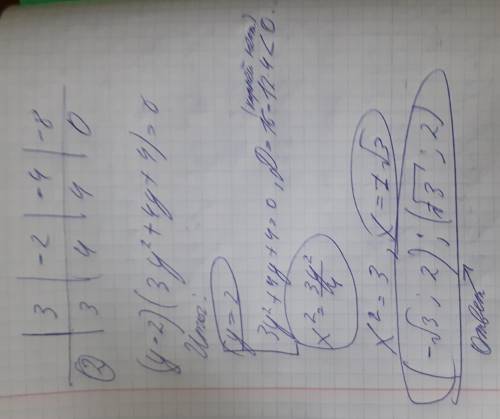 3 | -2 | -4 | -8
2 | 3 | 4 | 4 | 0
(y-2)(3y²+4y+4)=0
Итог:
y=2
3y²+4y+4=0, D=16-12·4<0. (корней нет)
x²=3y²/4
x²=3, x=±√3
(-√3; 2); (√3; 2)
Ответ